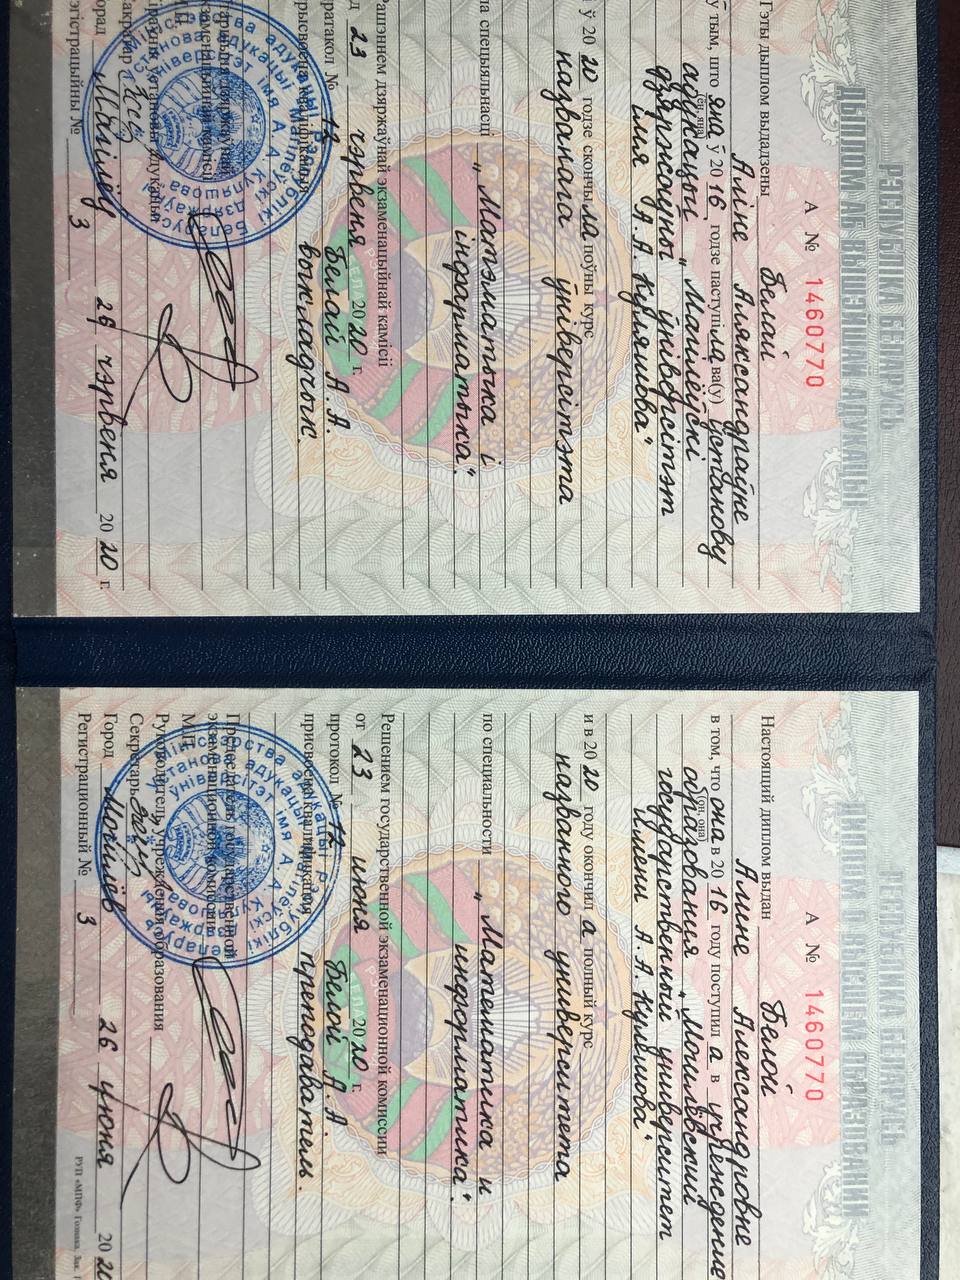 РЭСПУБЛІКА БЕЛАРУСЬ
ДЫПЛОМ АБ ВЫШЭЙШАЙ АДУКАЦЫІ
А № 1460770
Гэты дыплом выдадзены Белай
Аліне Аляксандраўне
ў тым, што яна ў 20 16 годзе паступіла ва(у) установу
(ён, яна)
адукацыі „Магілёўскі
дзяржаўны ўніверсітэт
імя А.А. Куляшова“
і ў 20 20 годзе скончыла поўны курс
названага ўніверсітэта
па спецыяльнасці „Матэматыка і
інфарматыка“.
Рашэннем дзяржаўнай экзаменацыйнай камісіі
23 чэрвеня 20 20 г.
пратакол № 12 Белай А. А.
прысвоена кваліфікацыя
выкладчык.
Магілёў 26 чэрвеня 20 20 г.
Рэгістрацыйны № 3
РЕСПУБЛИКА БЕЛАРУСЬ
ДИПЛОМ О ВЫСШЕМ ОБРАЗОВАНИИ
А № 1460770
Настоящий диплом выдан Белой
Алине Александровне
в том, что она в 20 16 году поступил а в учреждение
(он, она)
образования „Могилёвский
государственный университет
имени А. А. Кулешова“
и в 20 20 году окончил а полный курс
названного университета
по специальности „Математика и
информатика“.
Решением государственной экзаменационной комиссии
от 23 июня 20 20 г.
протокол № 12 Белой А. А
присвоена квалификация
преподаватель.
Председатель государственной
экзаменационной комиссии
М.П.
Руководитель учреждения образования
Секретарь
Город Могилёв 26 июня 20 20
Регистрационный № 3
РУП «МПФ» Гознака. Зак.